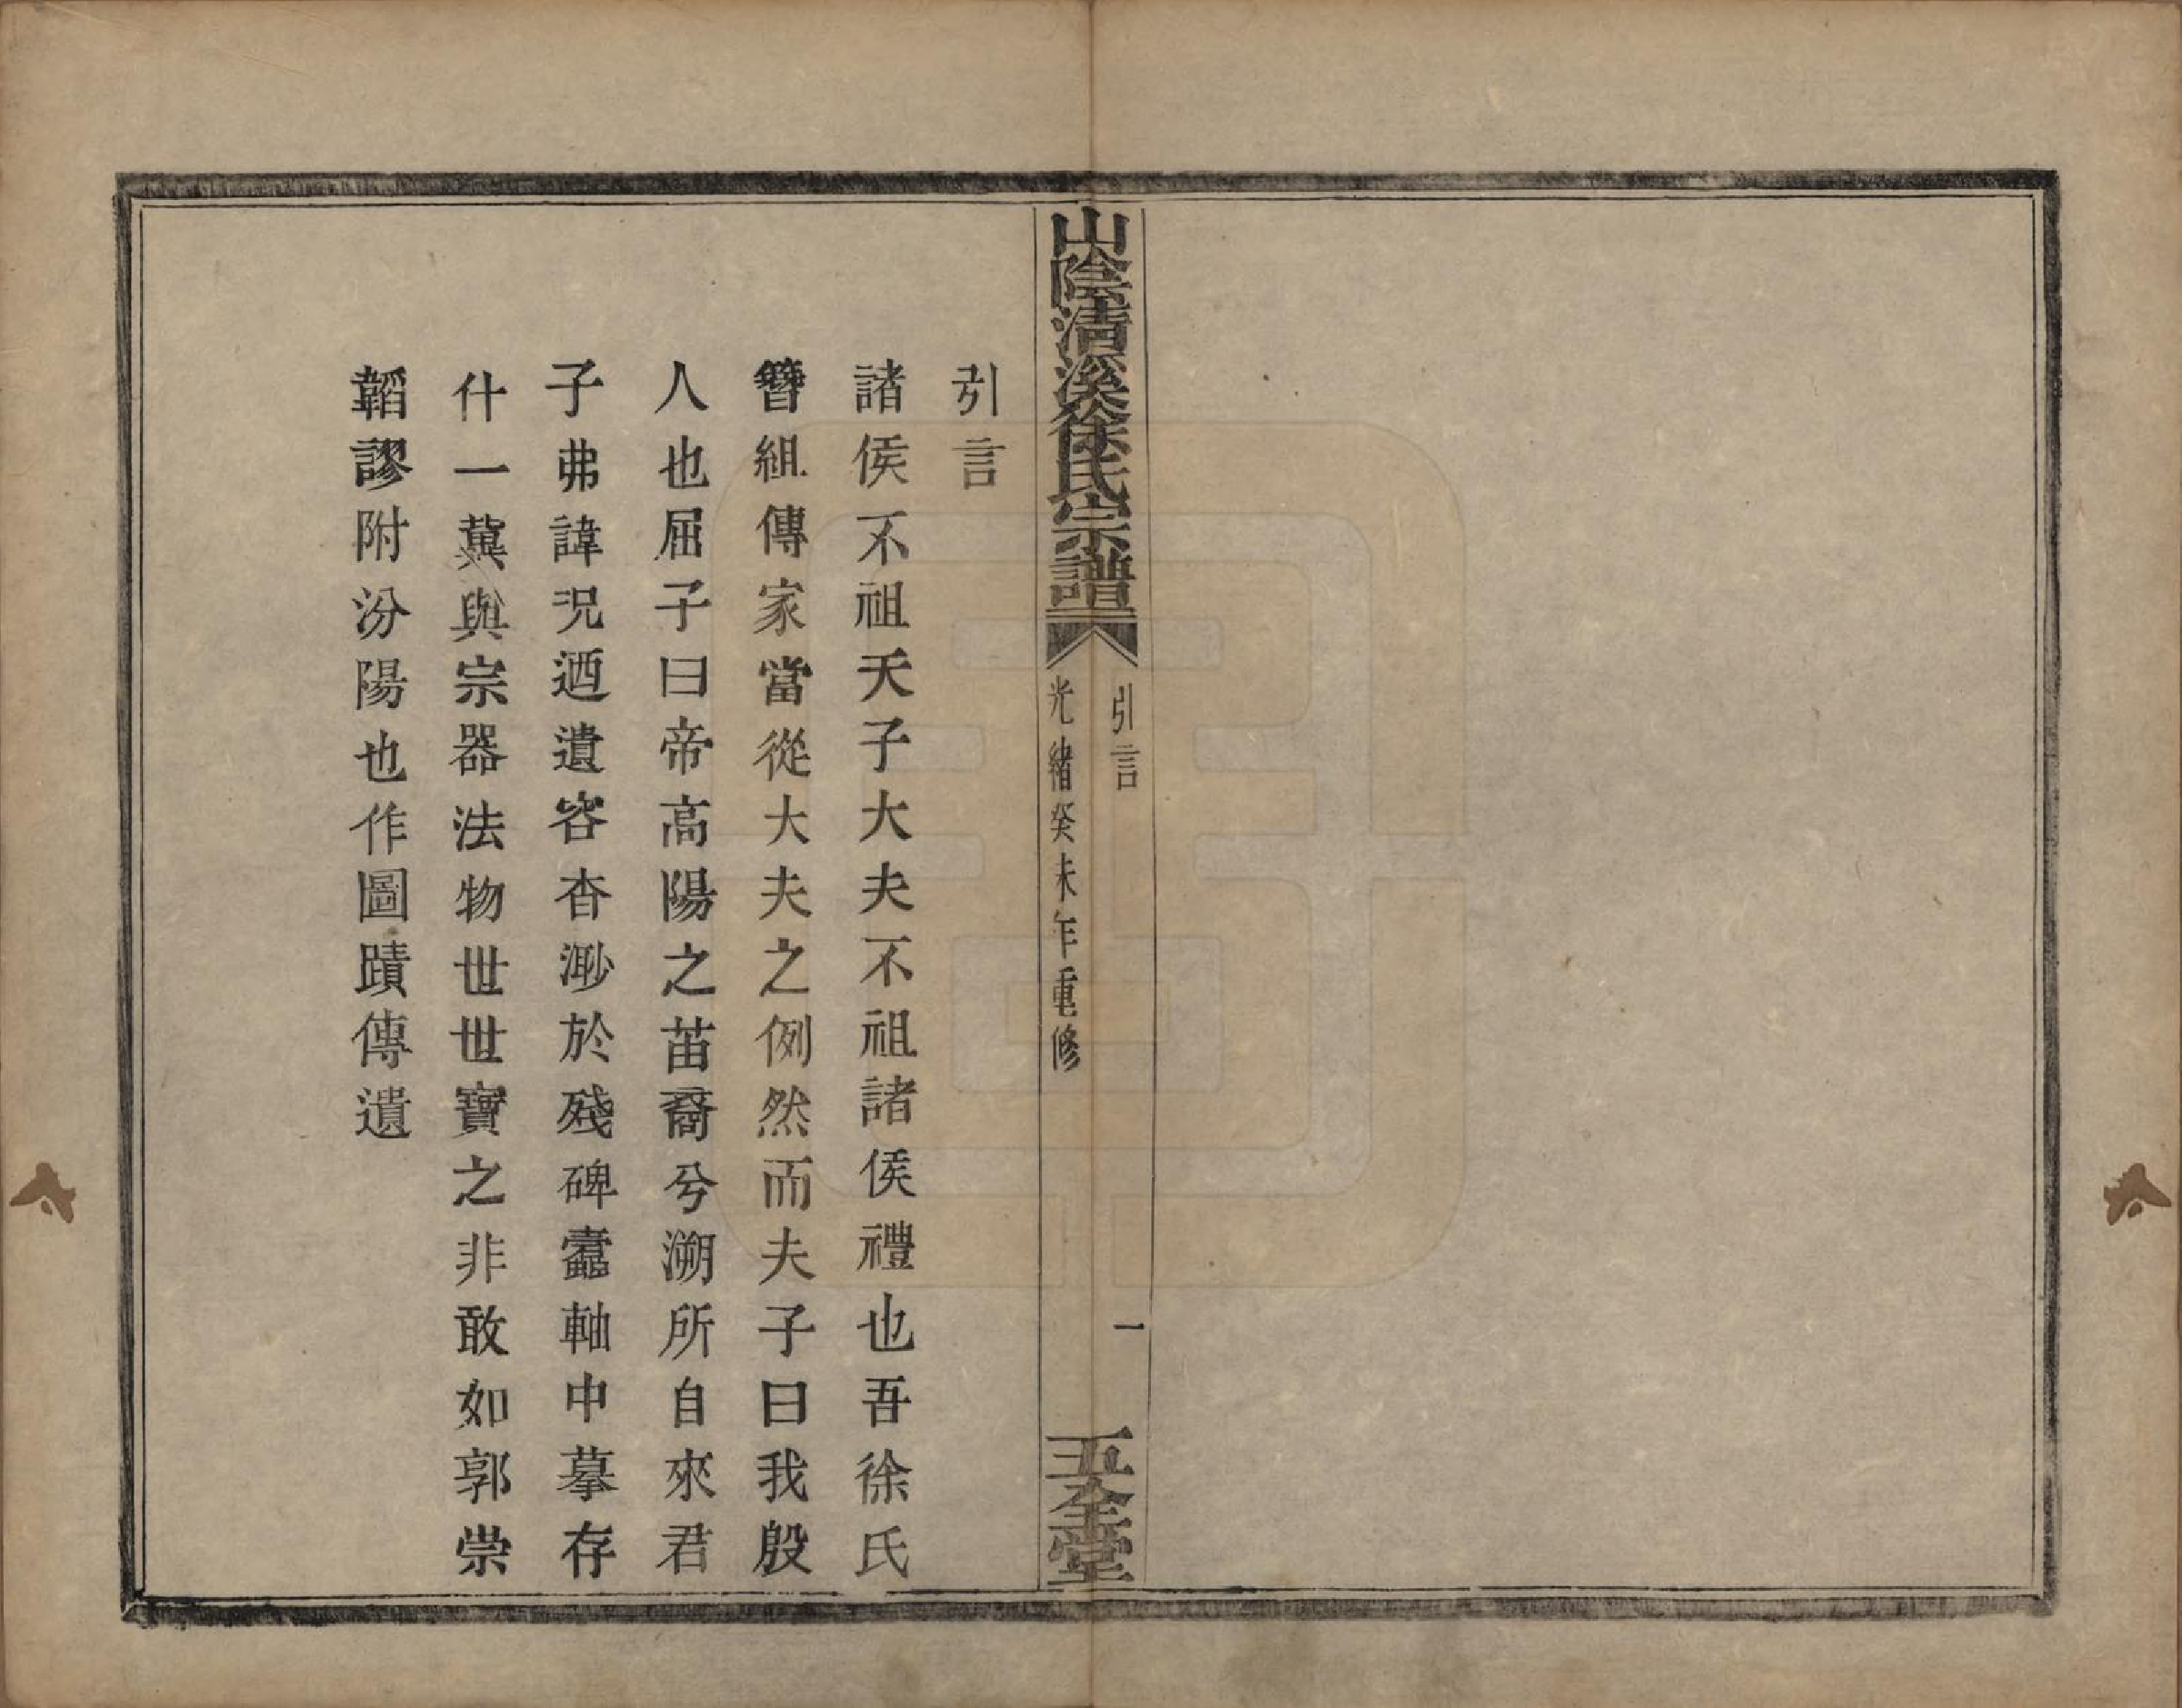 山陰清溪徐氏宗譜
引言
一
光緒癸未年重修
五全堂
引言
諸侯不祖天子大夫不祖諸侯禮也吾徐氏
簪組傳家當從大夫之例然而夫子曰我殷
人也屈子曰帝高陽之苗裔兮溯所自來君
子弗諱况迺遺容杳渺於殘碑蠹軸中摹存
什一冀與宗器法物世世寶之非敢如郭崇
韜謬附汾陽也作圖蹟傳遺